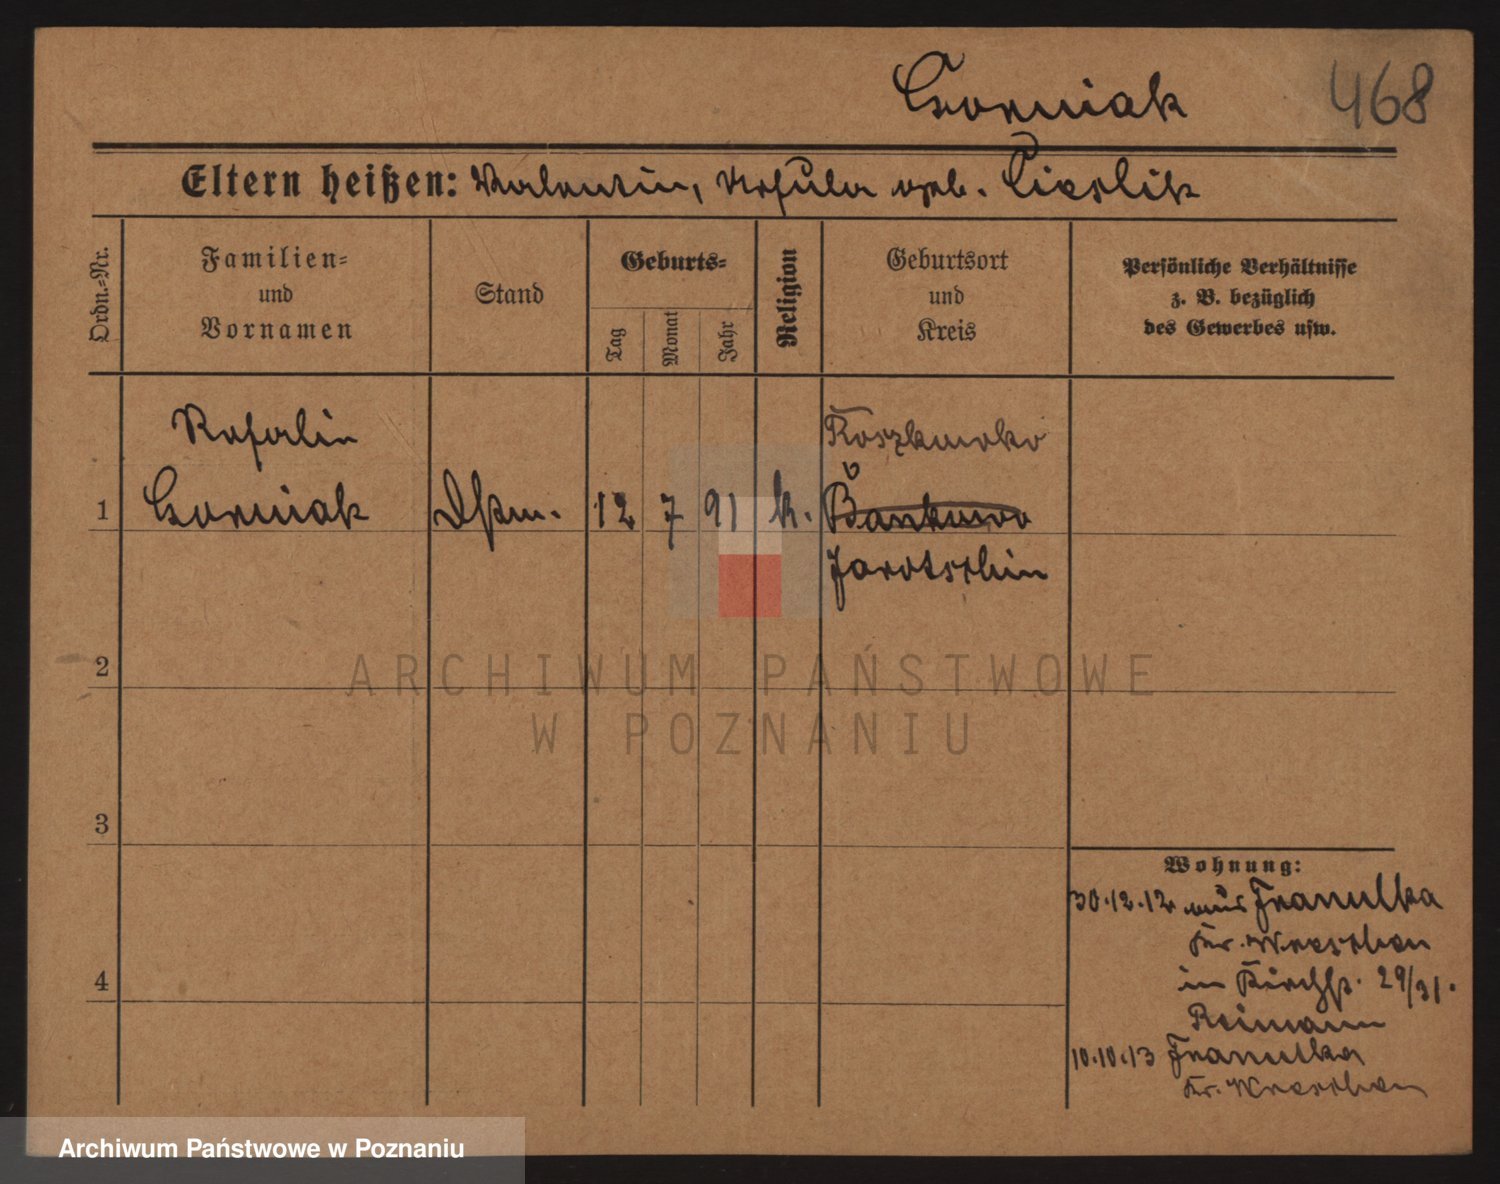 Gorniak 468
Eltern heißen: Valentin, Ursula geb. Cieslik
Ordn.-Nr.
Familien-
und
Vornamen
Stand
Geburts-
Tag
Monat
Jahr
Religion
Geburtsort
und
Kreis
Persönliche Verhältnisse
z. B. bezüglich
des Gewerbes usw.
Roszkowko
b
Jarotschin
1 Gorniak 12 7 91 k.
2
3
4
Wohnung:
30.12.12 aus Franulka
Kr. Wreschen
in Kirchstr. 29/31.
Reimann
10.10.13 Franulka
Kr. Wreschen
ARCHIWUM PAŃSTWOWE
W POZNANIU
Archiwum Państwowe w Poznaniu